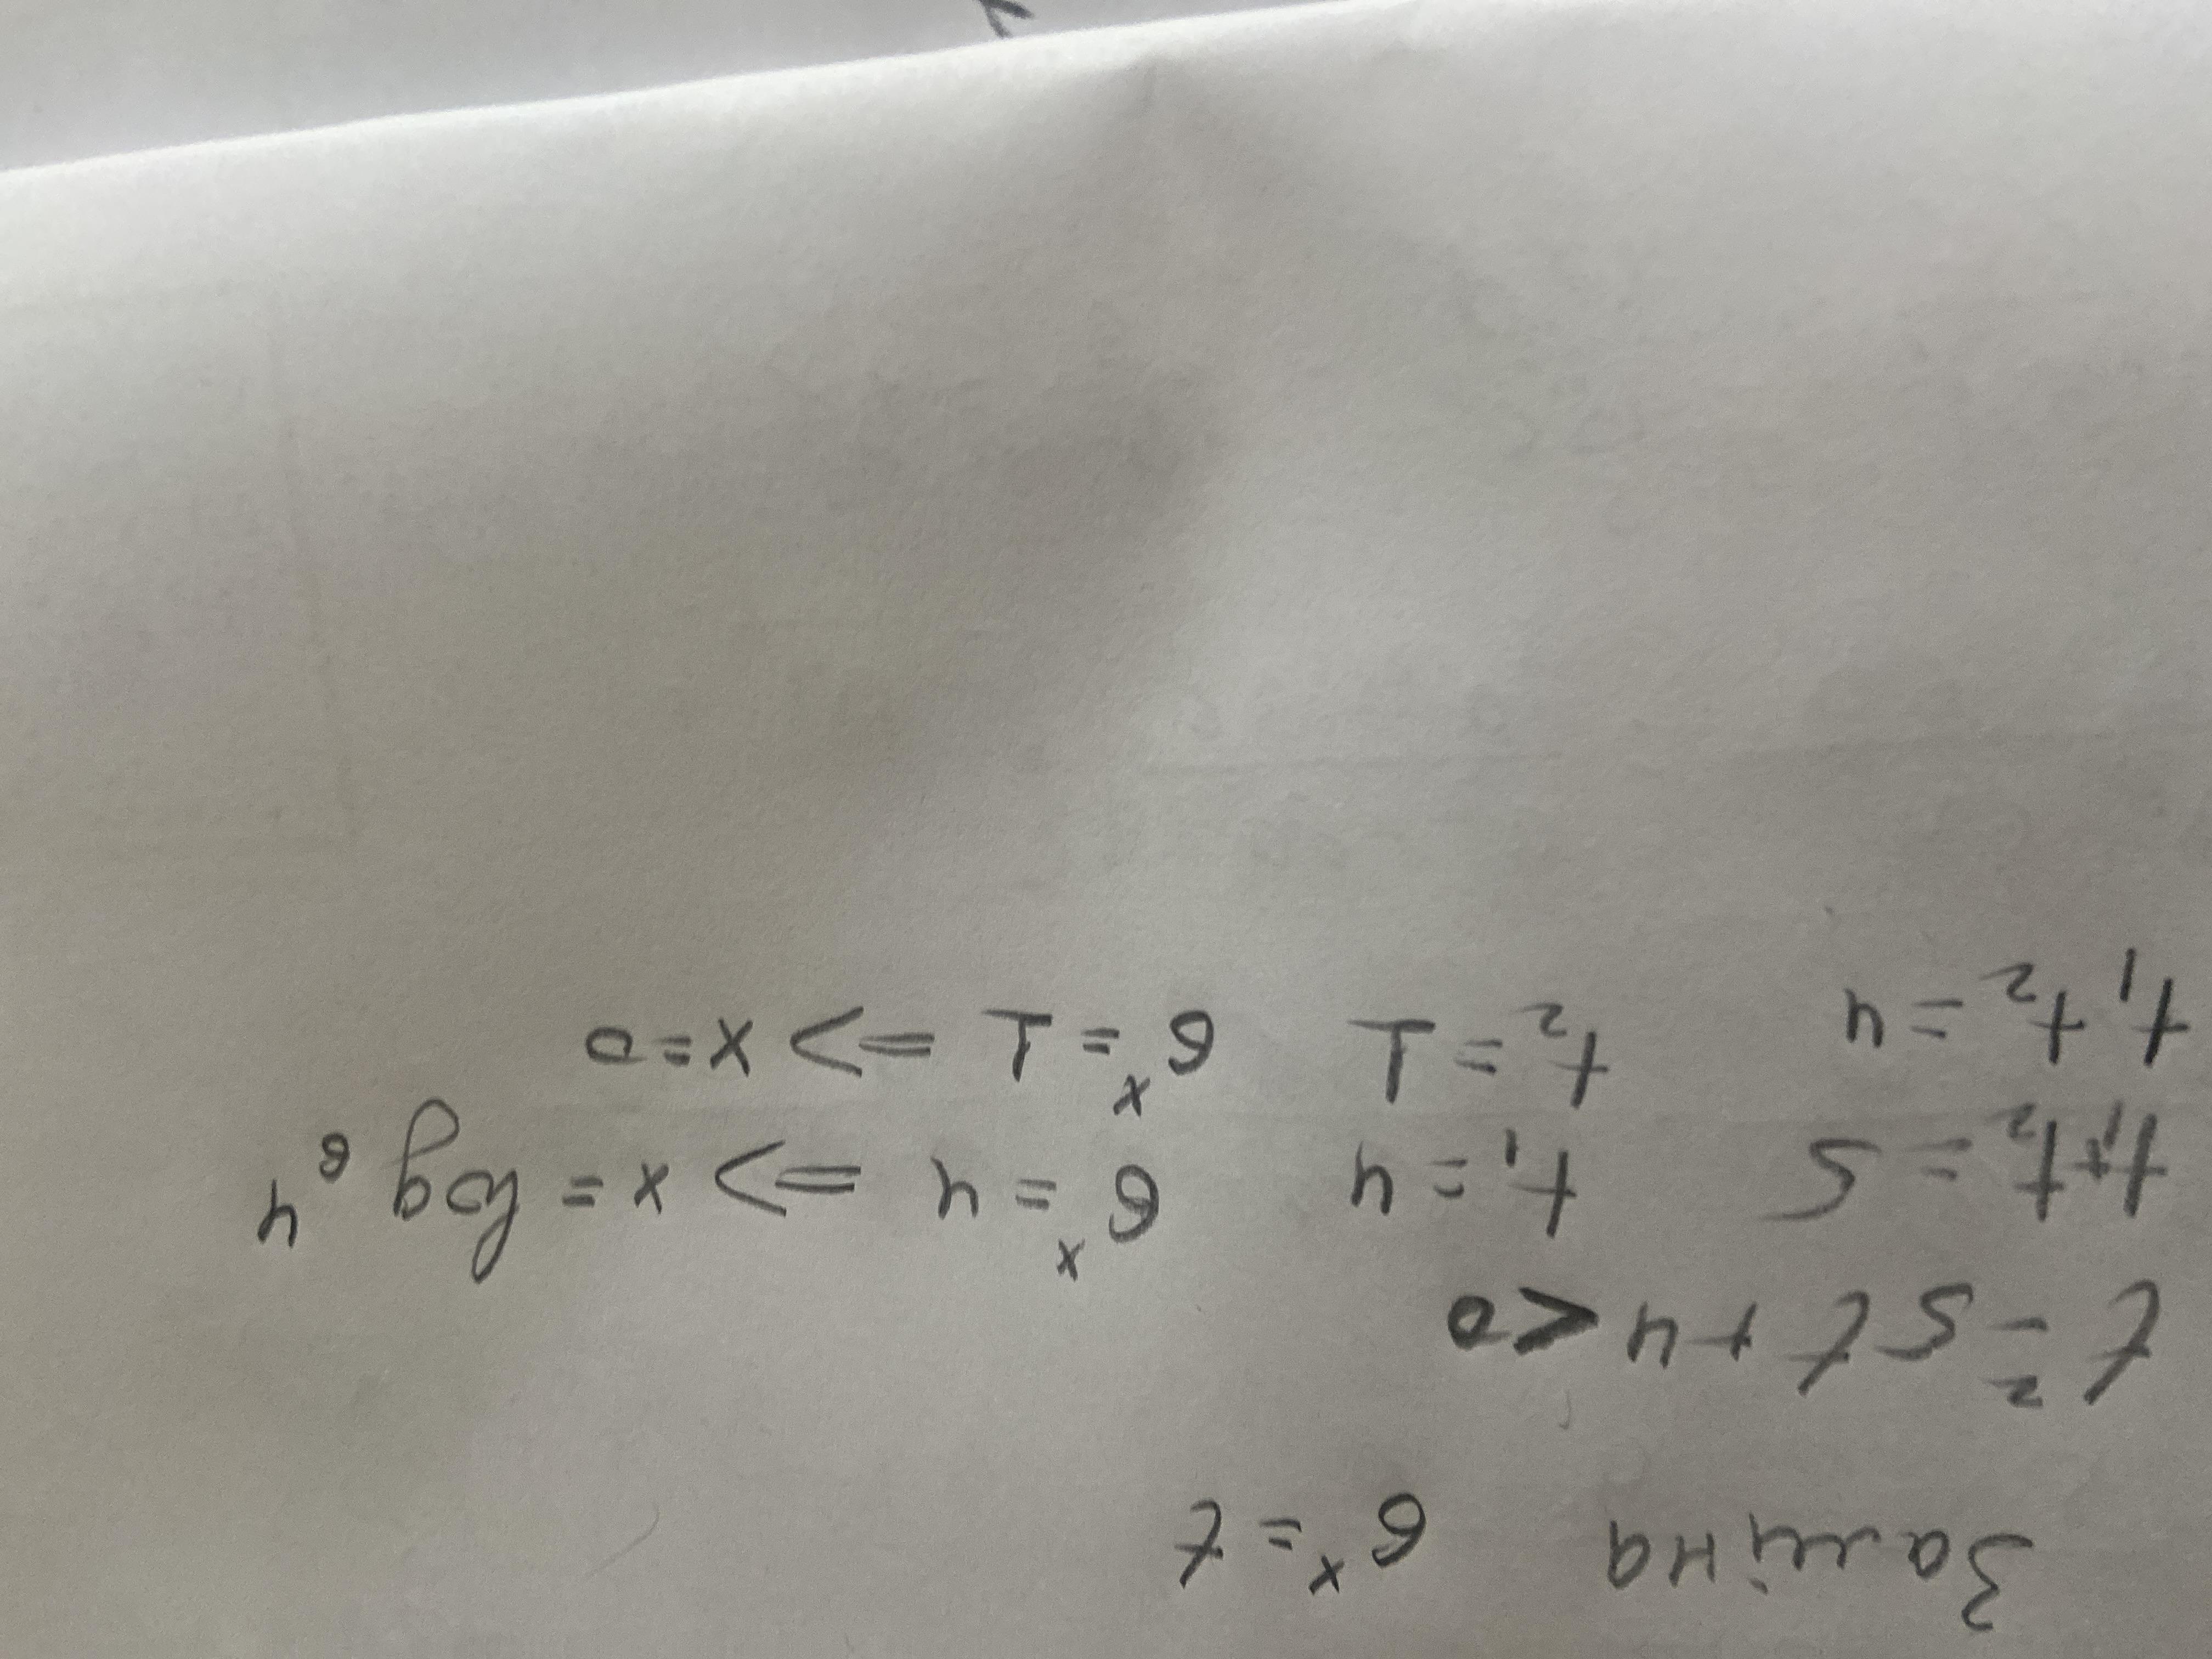 Заміна 6ˣ = t
t² - 5t + 4 < 0
t₁+t₂ = 5 t₁ = 4 6ˣ = 4 => x = log₆ 4
t₁ t₂ = 4 t₂ = 1 6ˣ = 1 => x = 0